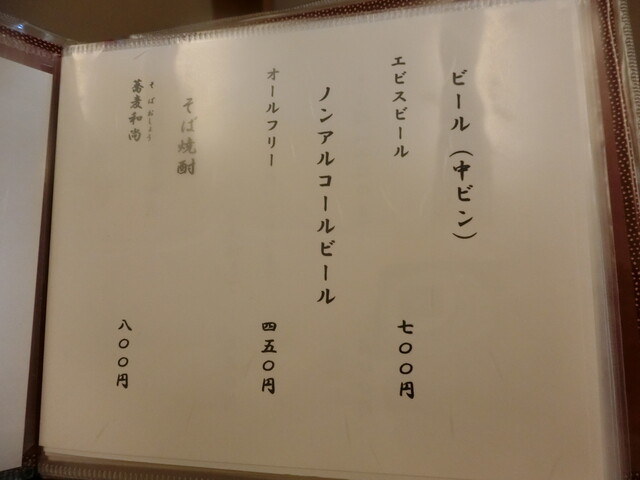 ビール（中ビン）
エビスビール
七〇〇円
ノンアルコールビール
オールフリー
四五〇円
そば焼酎
そばおしょう
蕎麦和尚
八〇〇円